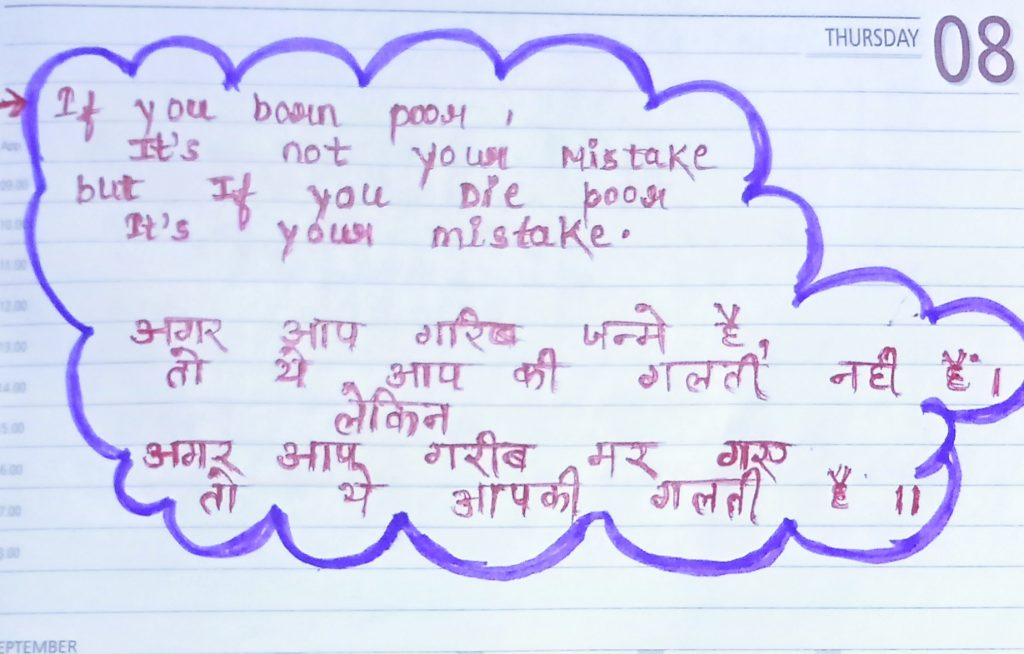 THURSDAY 08
If you born poor,
It's not your Mistake
but If you Die poor
It's your mistake.
अगर आप गरिब जन्मे है,
तो ये आप की गलती नही हैं।
लेकिन
अगर आप गरीब मर गए
तो ये आपकी गलती है ॥
09.00
10.00
11.00
12.00
13.00
14.00
15.00
16.00
17.00
18.00
EPTEMBER